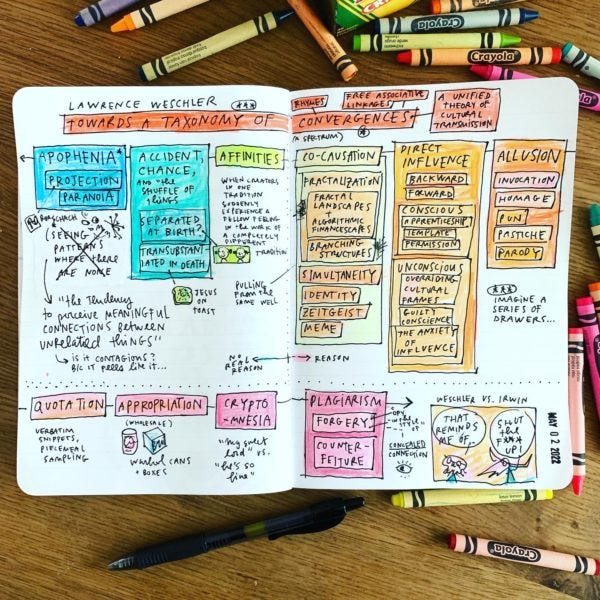 LAWRENCE WESCHLER
TOWARDS A TAXONOMY OF
APOPHENIA
PROJECTION
PARANOIA
RORSCHACH
SEEING
PATTERNS
WHERE THERE
ARE NONE
"the tendency
to perceive MEANINGFUL
CONNECTIONS BETWEEN
UNRELATED THINGS"
is it contagious?
B/C it feels like it...
ACCIDENT,
CHANCE,
AND the
SHUFFLE OF
things
SEPARATED
AT BIRTH?
TRANSUBSTANT
IATED IN DEATH
JESUS ON
TOAST
AFFINITIES
WHEN CREATORS
IN ONE
TRADITION
SUDDENLY
EXPERIENCE A
FELLOW FEELING
IN the WORK OF
A COMPLETELY
DIFFERENT
TRADITION
PULLING
FROM THE
SAME WELL
NO REAL
REASON
REASON
RHYMES
FREE ASSOCIATIVE
LINKAGES
A UNIFIED
THEORY OF
CULTURAL
TRANSMISSION
CONVERGENCES
(A SPECTRUM)
CO-CAUSATION
FRACTALIZATION
FRACTAL
LANDSCAPES
ALGORITHMIC
FINANCESCAPES
BRANCHING
STRUCTURES
SIMULTANEITY
IDENTITY
ZEITGEIST
MEME
DIRECT
INFLUENCE
BACKWARD
FORWARD
CONSCIOUS
APPRENTICESHIP
TEMPLATE
PERMISSION
UNCONSCIOUS
OVERRIDING
CULTURAL
FRAMES
GUILTY
CONSCIENCE
THE ANXIETY
OF
INFLUENCE
ALLUSION
INVOCATION
HOMAGE
PUN
PASTICHE
PARODY
IMAGINE A
SERIES OF
DRAWERS...
QUOTATION
VERBATIM
SNIPPETS,
PIECEMEAL
SAMPLING
APPROPRIATION
(WHOLESALE)
Warhol CANS
+ BOXES
CRYPTO
-MNESIA
"my sweet
lord" vs.
"he's so
fine"
PLAGIARISM
FORGERY
COUNTER-
FEITURE
COPY
in the
STYLE
OF
CONCEALED
CONNECTION
WESCHLER VS. IRWIN
THAT
REMINDS
ME OF...
SHUT
the
F***
UP!
MAY 02 2022
Crayola
Crayola
Crayola
Crayola
Crayola